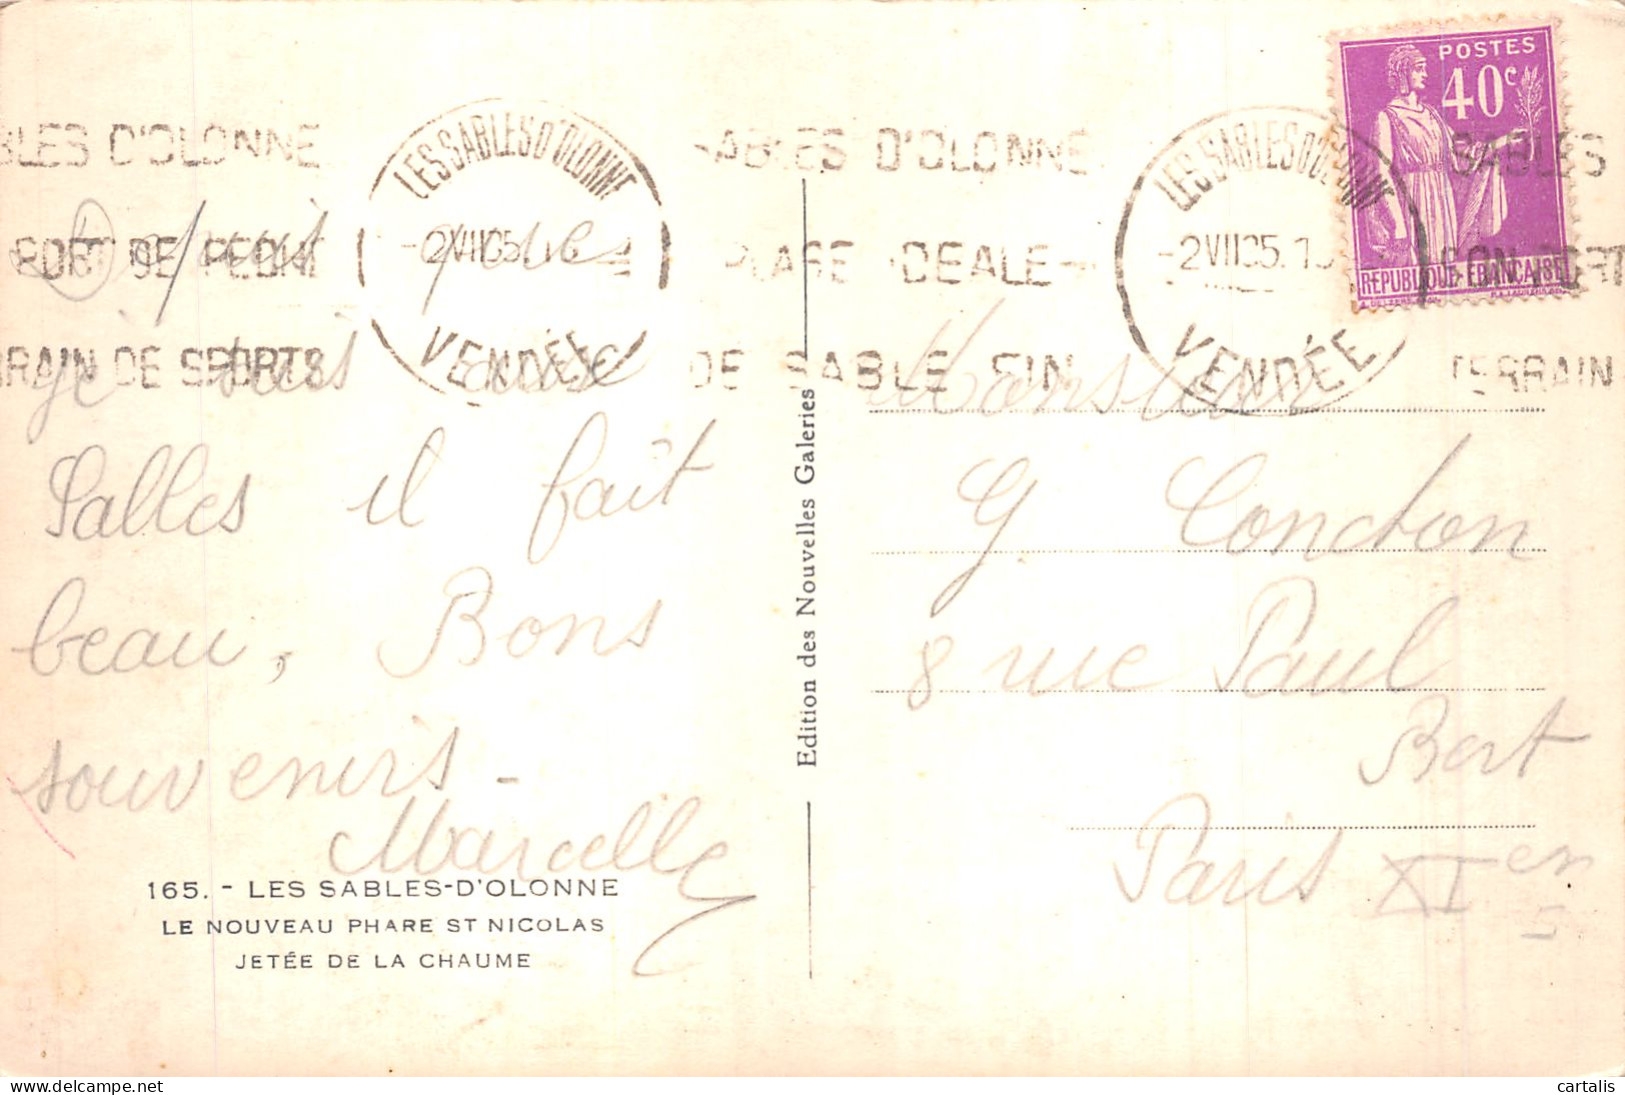 SABLES D'OLONNE
PLAGE IDEALE
DE SABLE FIN
LES SABLES D'OLONNE
VENDÉE
LES SABLES D'OLONNE
-2 VII 35
VENDÉE
POSTES
40c
REPUBLIQUE FRANCAISE
SABLES
BON PORT
TERRAIN
BLES D'OLONNE
PORT DE PECHE
RRAIN DE SPORTS
Depuis
je suis aux
Salbes il fait
beau, Bons
souvenirs -
Marcelle
165. - LES SABLES-D'OLONNE
LE NOUVEAU PHARE ST NICOLAS
JETÉE DE LA CHAUME
Edition des Nouvelles Galeries
Monsieur
G. Conchon
8 rue Paul
Bert
Paris XI em
cartalis